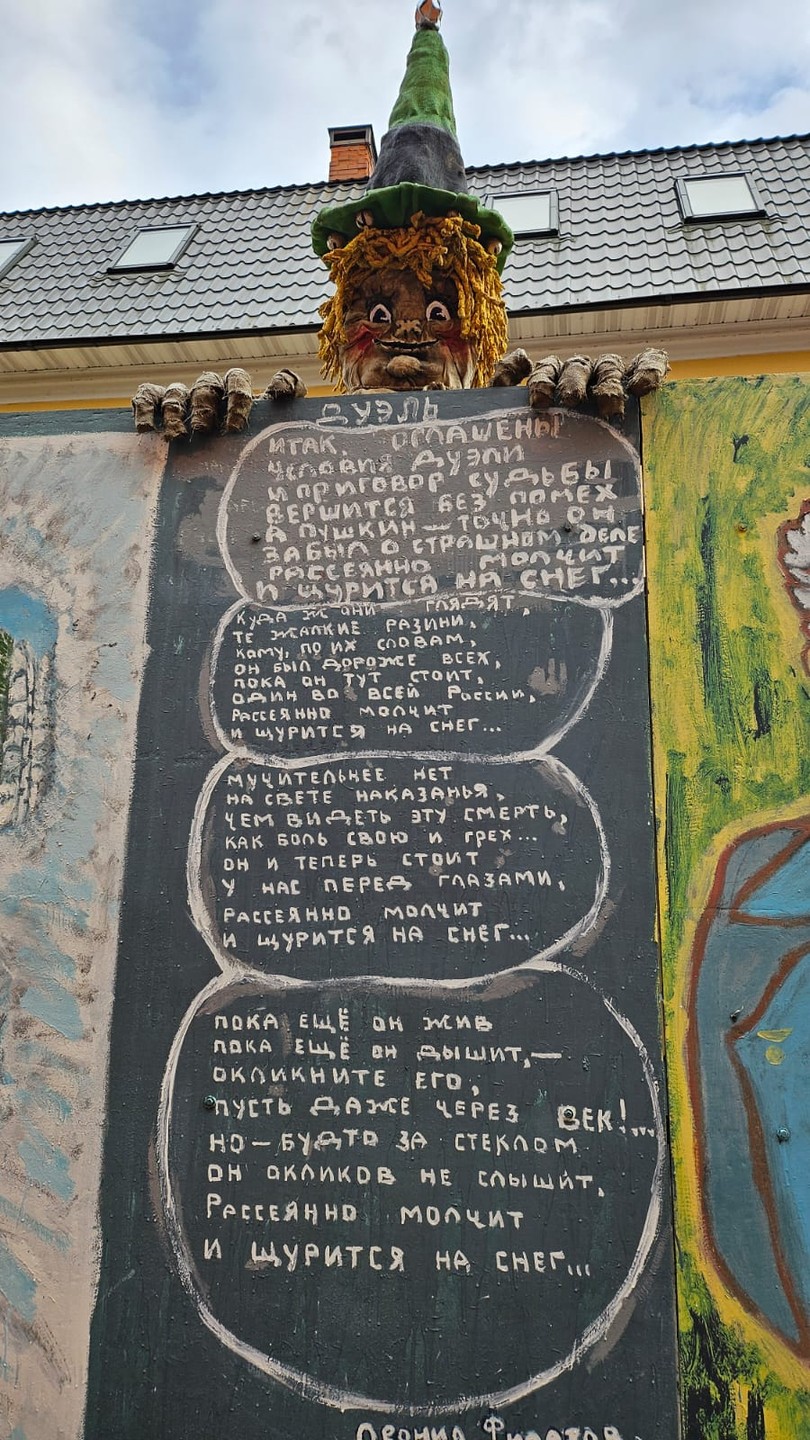 ДУЭЛЬ
ИТАК, ОГЛАШЕНЫ
УСЛОВИЯ ДУЭЛИ
И ПРИГОВОР СУДЬБЫ
ВЕРШИТСЯ БЕЗ ПОМЕХ
А ПУШКИН — ТОЧНО ОН
ЗАБЫЛ О СТРАШНОМ ДЕЛЕ
РАССЕЯННО МОЛЧИТ
И ЩУРИТСЯ НА СНЕГ...
КУДА Ж ОНИ ГЛЯДЯТ,
ТЕ ЖАЛКИЕ РАЗИНИ,
КОМУ, ПО ИХ СЛОВАМ,
ОН БЫЛ ДОРОЖЕ ВСЕХ,
ПОКА ОН ТУТ СТОИТ,
ОДИН ВО ВСЕЙ РОССИИ,
РАССЕЯННО МОЛЧИТ
И ЩУРИТСЯ НА СНЕГ...
МУЧИТЕЛЬНЕЕ НЕТ
НА СВЕТЕ НАКАЗАНЬЯ,
ЧЕМ ВИДЕТЬ ЭТУ СМЕРТЬ,
КАК БОЛЬ СВОЮ И ГРЕХ...
ОН И ТЕПЕРЬ СТОИТ
У НАС ПЕРЕД ГЛАЗАМИ,
РАССЕЯННО МОЛЧИТ
И ЩУРИТСЯ НА СНЕГ...
ПОКА ЕЩЁ ОН ЖИВ
ПОКА ЕЩЁ ОН ДЫШИТ,—
ОКЛИКНИТЕ ЕГО,
ПУСТЬ ДАЖЕ ЧЕРЕЗ ВЕК!...
НО — БУДТО ЗА СТЕКЛОМ
ОН ОКЛИКОВ НЕ СЛЫШИТ,
РАССЕЯННО МОЛЧИТ
И ЩУРИТСЯ НА СНЕГ...
Леонид Филатов